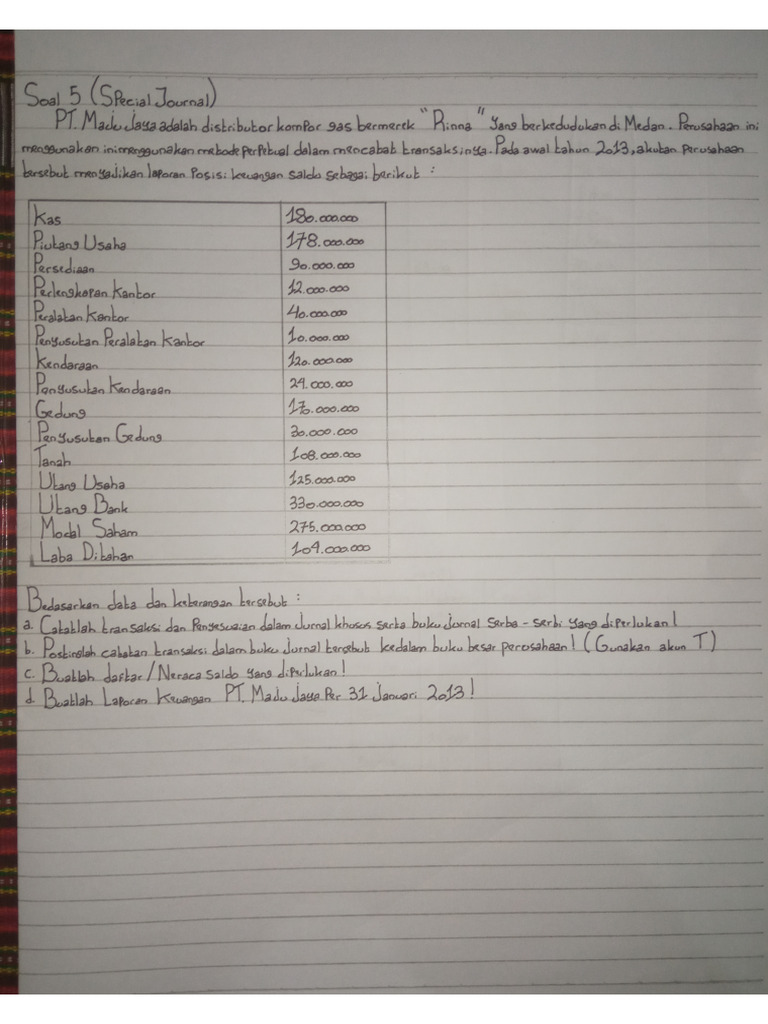 Soal 5 (Special Journal)
PT. Madu Jaya adalah distributor kompor gas bermerek "Rinna" yang berkedudukan di Medan. Perusahaan ini
menggunakan ini menggunakan metode perpetual dalam mencatat transaksinya. Pada awal tahun 2013, akuntan perusahaan
tersebut menyajikan laporan posisi keuangan saldo sebagai berikut :
Kas 180.000.000
Piutang Usaha 178.000.000
Persediaan 90.000.000
Perlengkapan Kantor 12.000.000
Peralatan Kantor 40.000.000
Penyusutan Peralatan Kantor 10.000.000
Kendaraan 120.000.000
Penyusutan Kendaraan 24.000.000
Gedung 170.000.000
Penyusutan Gedung 30.000.000
Tanah 108.000.000
Utang Usaha 125.000.000
Utang Bank 330.000.000
Modal Saham 275.000.000
Laba Ditahan 104.000.000
Bedasarkan data dan keterangan tersebut :
a. Catatlah transaksi dan Penyesuaian dalam Jurnal khosos serta buku Jornal Serba - serbi yang diperlukan!
b. Postinglah catatan transaksi dalam buku Jurnal tersebut kedalam buku besar perosahaan! (Gunakan akun T)
c. Buatlah daftar/Neraca Saldo yang diperlukan!
d. Buatlah Laporan Keuangan PT. Madu Jaya Per 31 Januari 2013!